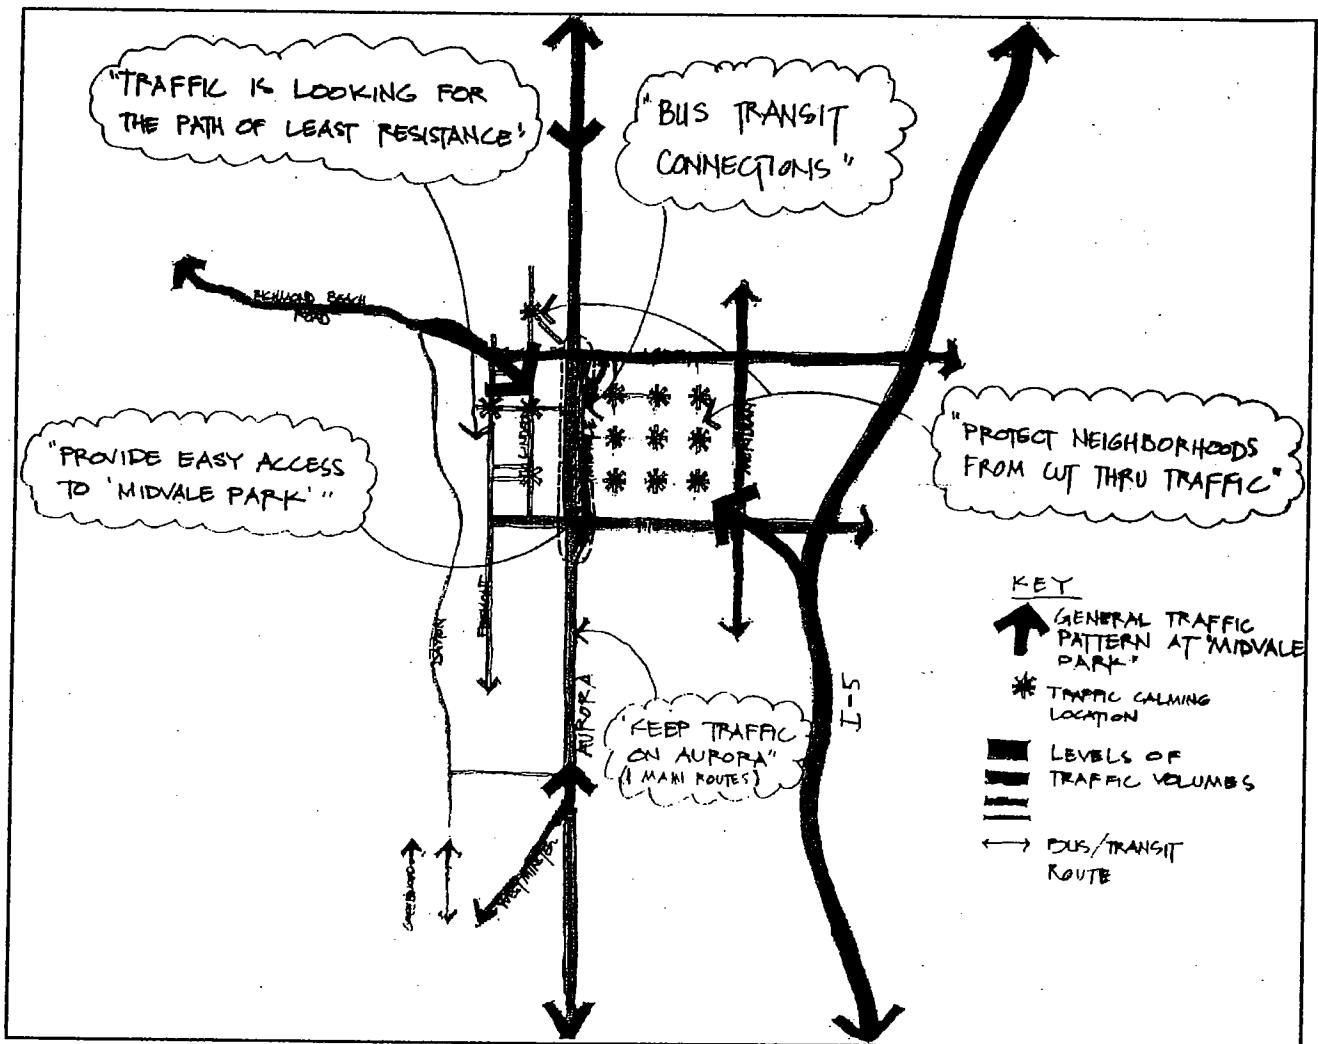 "TRAFFIC IS LOOKING FOR
THE PATH OF LEAST RESISTANCE"
"BUS TRANSIT
CONNECTIONS"
RICHMOND BEACH
ROAD
"PROVIDE EASY ACCESS
TO 'MIDVALE PARK'"
LINDEN
MIDVALE
MERIDIAN
"PROTECT NEIGHBORHOODS
FROM CUT THRU TRAFFIC"
FREMONT
DAYTON
AURORA
I-5
"KEEP TRAFFIC
ON AURORA"
(MAIN ROUTES)
GREENWOOD
WESTMINSTER
KEY
GENERAL TRAFFIC
PATTERN AT "MIDVALE
PARK"
TRAFFIC CALMING
LOCATION
LEVELS OF
TRAFFIC VOLUMES
BUS/TRANSIT
ROUTE